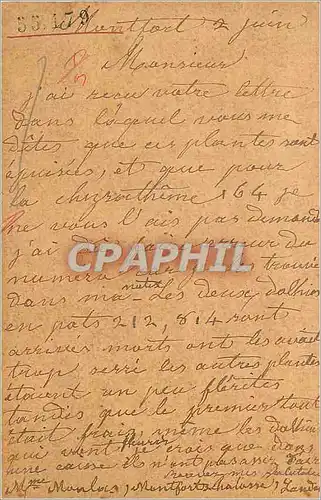 33.159
Montfort 2 juin
Monsieur
j'ai recu votre lettre
dans laquel vous me
dites que ces plantes sont
épuisées, et que pour
la 164 je
ne vous l'ais pas demand
j'ai du du
numero trouve
dans ma Les deux dalhias
en pots 212, 814 sont
arrivés morts ont les avait
trop serré les autres plantes
étaient un peu flêtries
tandis que le premier tout
était frais, même les dalhias
qui vont fleurir
je crois que dans
une caisse il n'ont pas assez d'air
Mme Montfort Landes
CPAPHIL